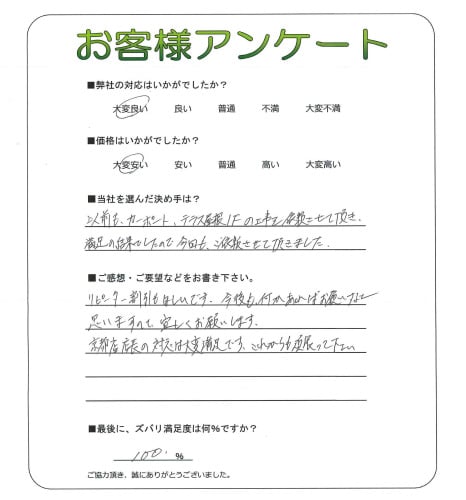 お客様アンケート
■弊社の対応はいかがでしたか?
大変良い 良い 普通 不満 大変不満
■価格はいかがでしたか?
大変安い 安い 普通 高い 大変高い
■当社を選んだ決め手は?
以前も、カーポート、テラス屋根1Fの工事を依頼させて頂き、
満足の結果でしたので今回も、ご依頼させて頂きました。
■ご感想・ご要望などをお書き下さい。
リピーター割引もほしいです。今後も、何かあればお願いしたいと
思いますので、宜しくお願いします。
京都店店長の対応は大変満足です。これからも頑張って下さい
■最後に、ズバリ満足度は何%ですか?
100. %
ご協力頂き、誠にありがとうございました。